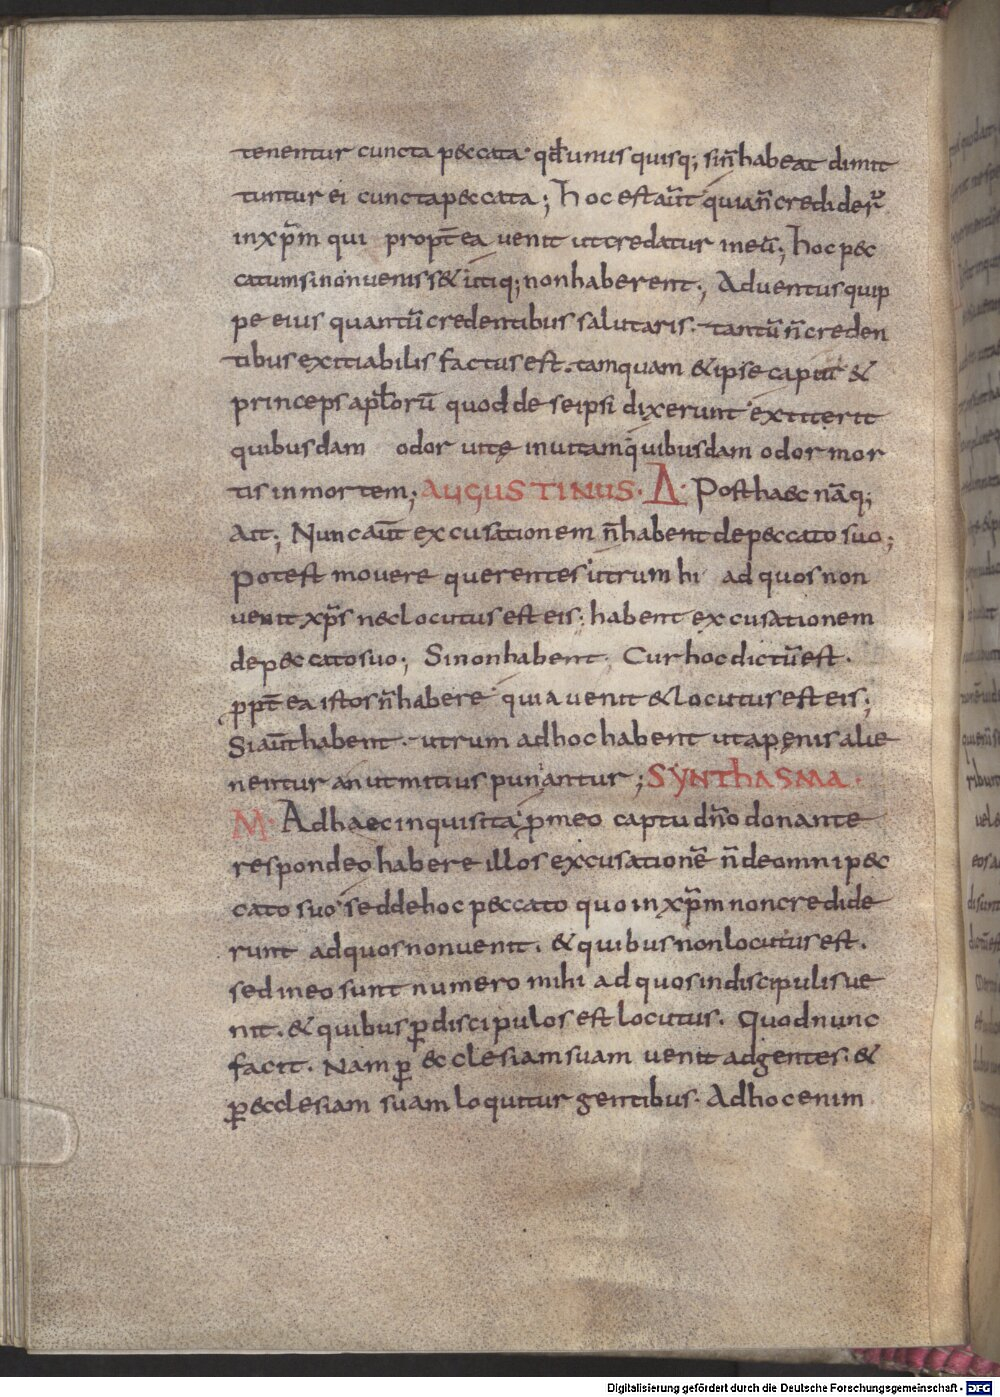 tenentur cuncta peccata qđ unus quisq; si n̄ habeat dimit
tuntur ei cuncta peccata; hoc est aūt quia n̄ credider̄
in xp̄m qui propt̄ea uenit ut credatur in eū; hoc pec
catum si non uenis s& utiq; non haberent; Aduentus quip
pe eius quantū credentibus salutaris. tantū n̄ creden
tibus exitiabilis factus est. tamquam & ipse caput &
princeps apl̄orū quod de se ipsi dixerunt extiterit
quibusdam odor uitę in uitam quibusdam odor mor
tis in mortem; AUGUSTINUS. A. Post haec nāq;
Ait; Nunc aūt excusationem n̄ habent de peccato suo;
Potest mouere querentes utrum hi ad quos non
uenit xp̄s nec locutus est eis; habent excusationem
de peccato suo; Si non habent. Cur hoc dictū est.
ꝓpt̄ ea istos n̄ habere quia uenit & locutus est eis;
Si aūt habent. utrum ad hoc habent ut a penis alie
nentur an ut mitius puniantur; SYNTHASMA.
M. Ad haec inquisita ꝓ meo captu dn̄o donante
respondeo habere illos excusationē n̄ de omni pec
cato suo sed de hoc peccato quo in xp̄m non credide
runt ad quos non uenit. & quibus non locutus est.
sed in eo sunt numero mihi ad quos in discipulis ue
nit. & quibus ꝑ discipulos est locutus. Quod nunc
facit. Nam ꝑ ecclesiam suam uenit ad gentes. &
ꝑ ecclesiam suam loquitur gentibus. Ad hoc enim
Digitalisierung gefördert durch die Deutsche Forschungsgemeinschaft - DFG